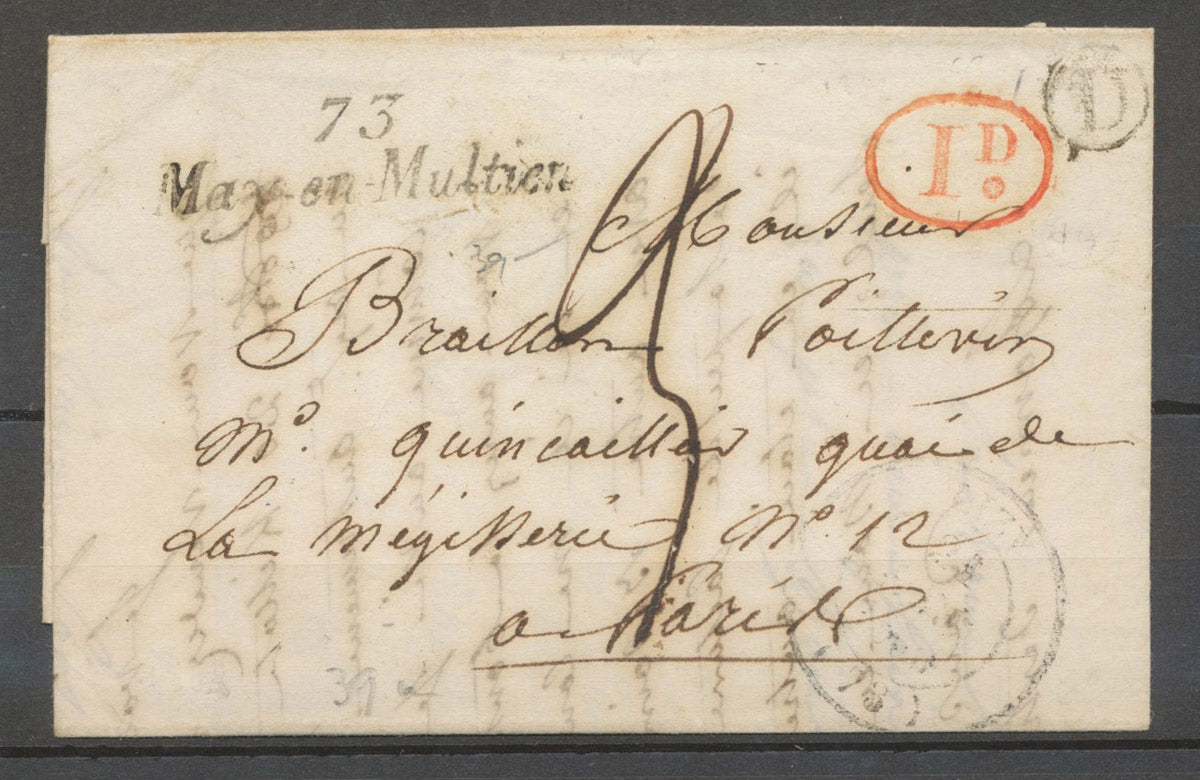 73
May-en-Multien
1D
D
Monsieur
Braillon Poittevin
Md. quincaillier quai de
La mégisserie No 12
a Paris
39
39